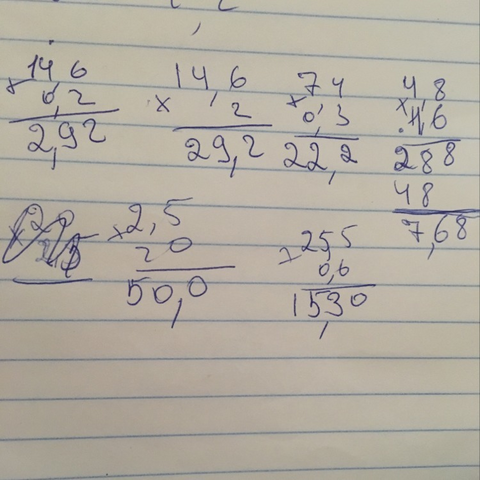 14,6
× 0,2
2,92
14,6
× 2
29,2
74
× 0,3
22,2
4,8
× 1,6
288
48
7,68
2,5
× 20
50,0
255
× 0,6
15,30